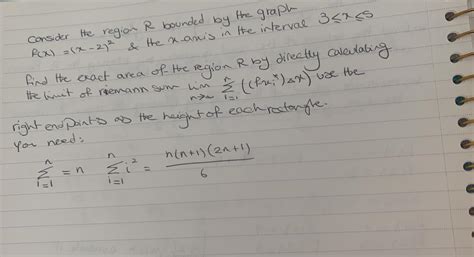 Consider the region R bounded by the graph
f(x) = (x-2)² & the x-axis in the interval 3≤x≤5
find the exact area of the region R by directly calculating
the limit of riemann sum lim n→∞ n Σ i=1 ((f xi*) Δx) use the
right endpoints as the height of each rectangle.
You need:
n Σ i=1 = n n Σ i=1 i² = n(n+1)(2n+1) / 6